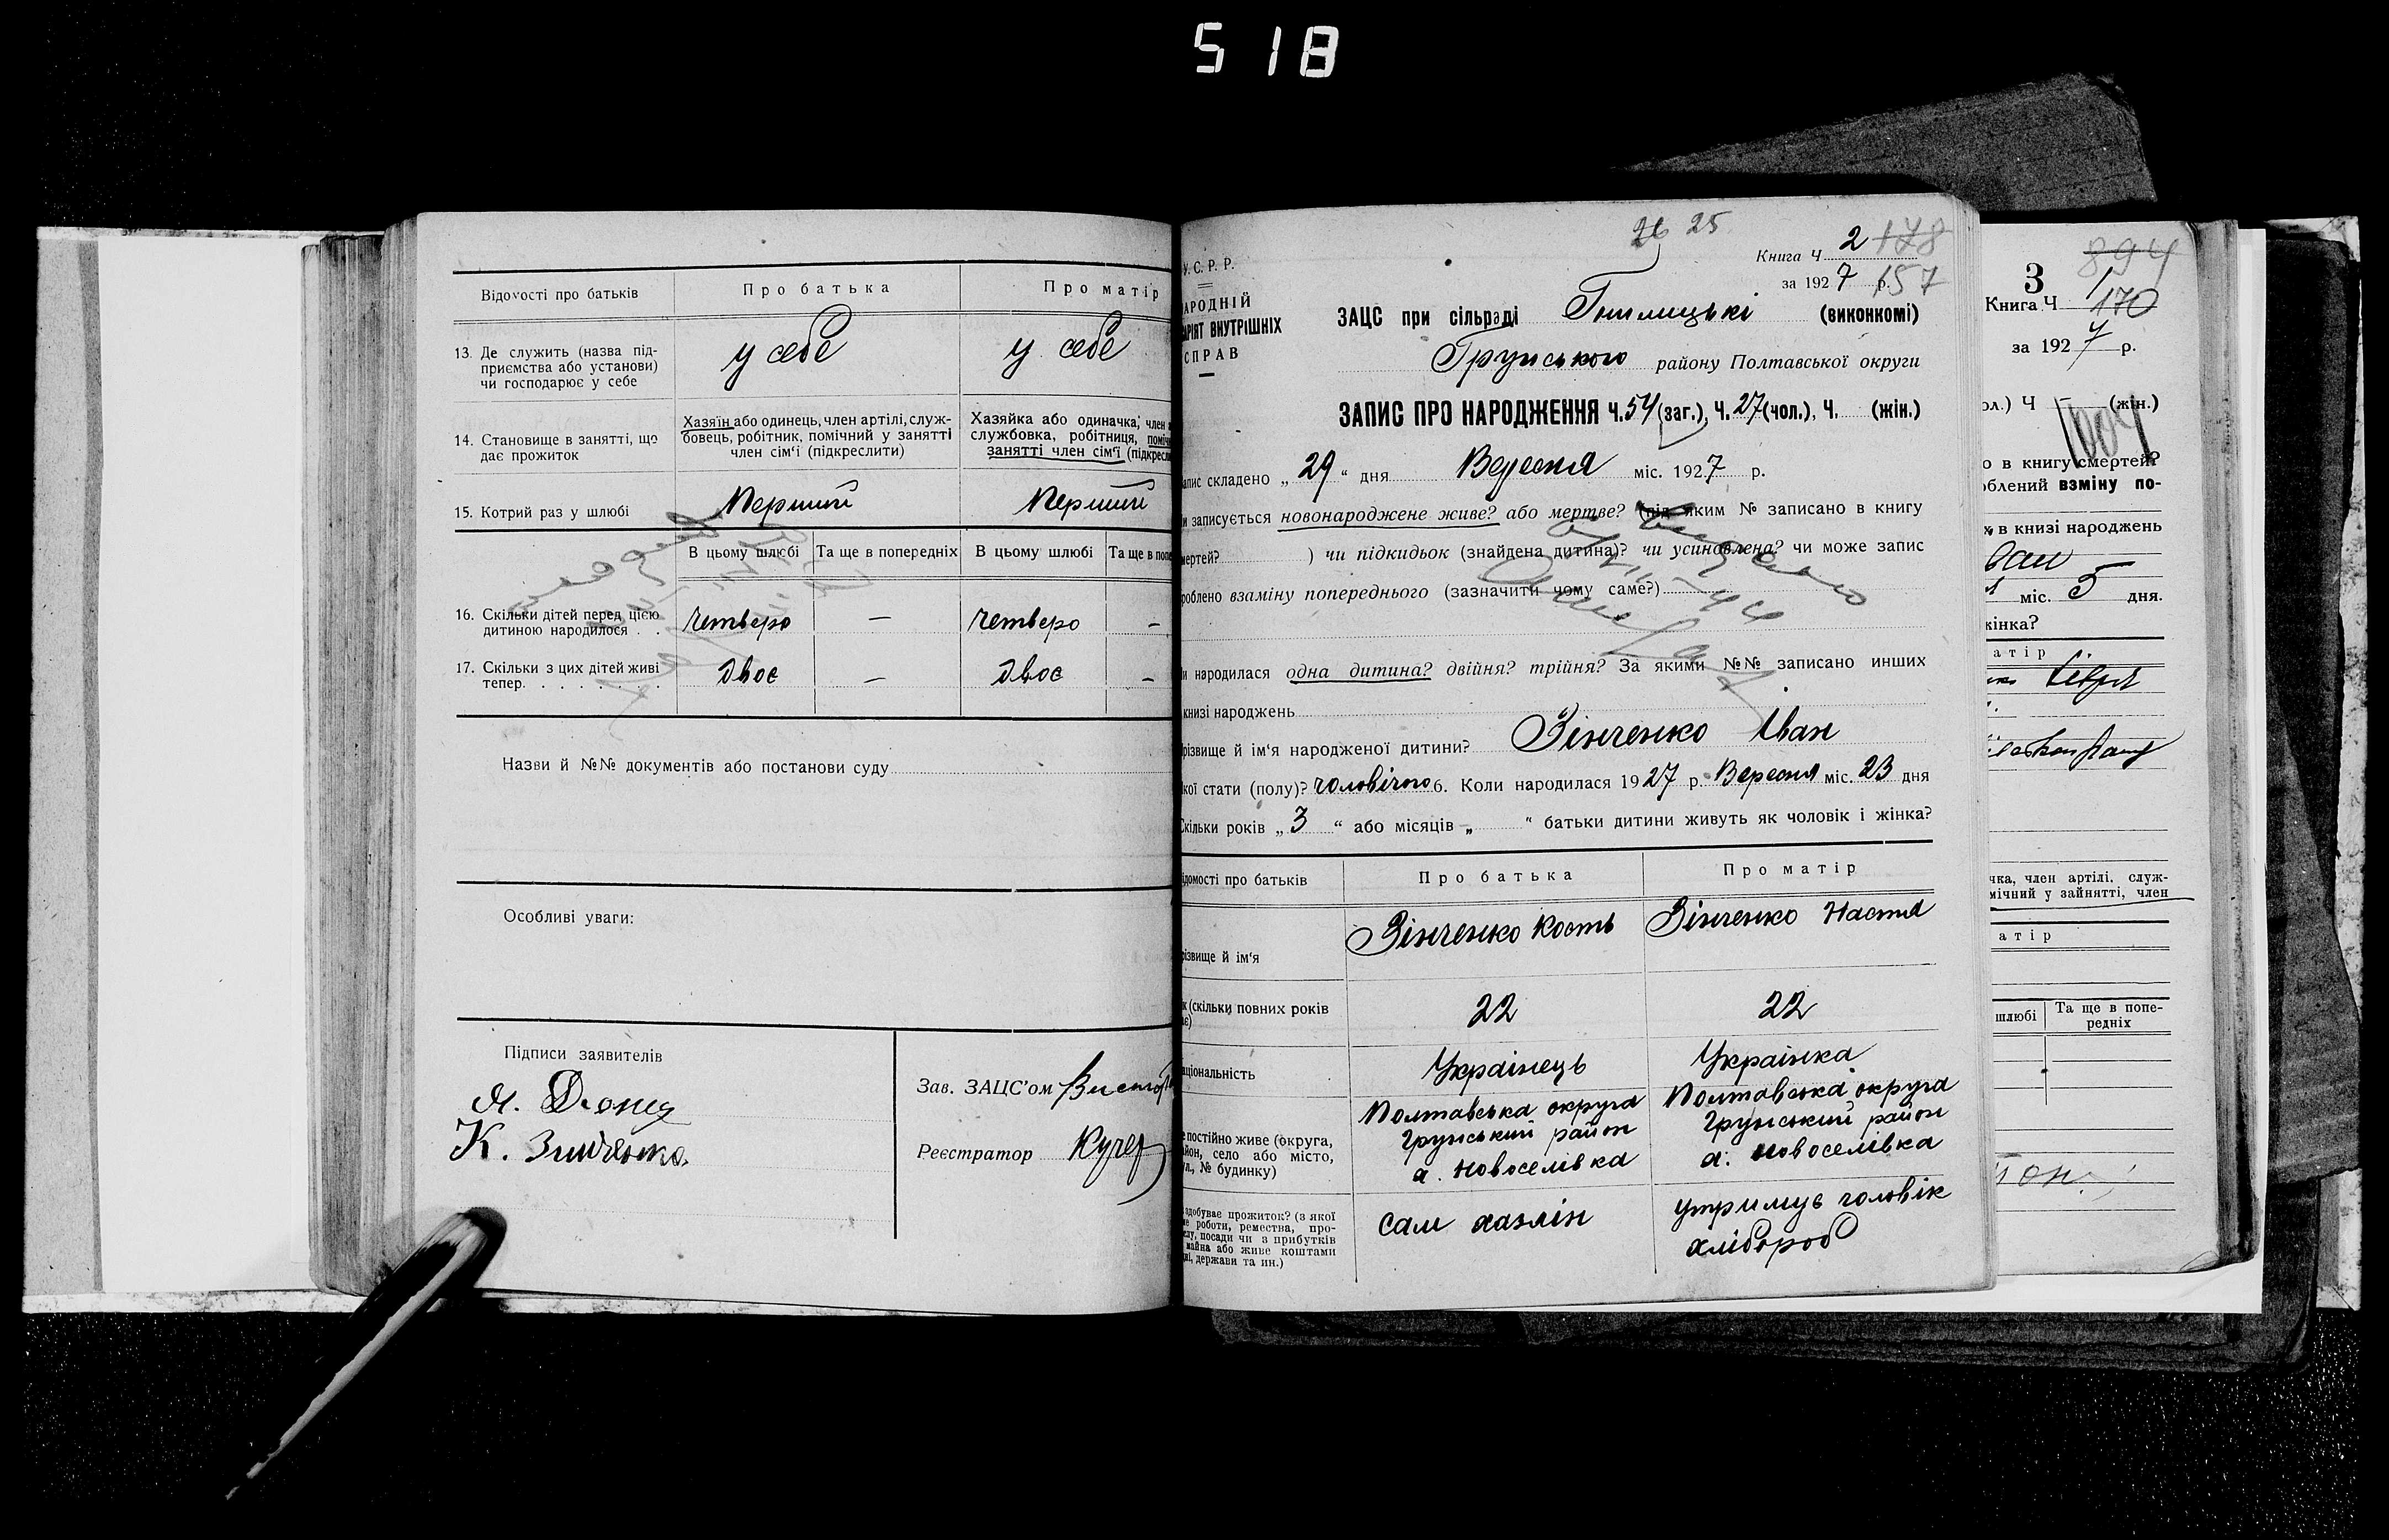 518
Відомості про батьків
Про батька
Про матір
13. Де служить (назва під-
приємства або установи)
чи господарює у себе
у себе
у себе
14. Становище в занятті, що
дає прожиток
Хазяїн або одинець, член артілі, служ-
бовець, робітник, помічний у занятті
член сім'ї (підкреслити)
Хазяйка або одиначка, член
службовка, робітниця,
занятті член сім'ї
15. Котрий раз у шлюбі
Перший
Перший
В цьому шлюбі
Та ще в попередніх
В цьому шлюбі
Та ще в
16. Скільки дітей перед цією
дитиною народилося . .
четверо
—
четверо
–
17. Скільки з цих дітей живі
тепер. . . . . . . .
двоє
—
двоє
–
Назви й №№ документів або постанови суду
Особливі уваги:
Підписи заявителів
К. Зінченко
Зав. ЗАЦС'ом
Реєстратор Кучер
26 25
У. С. Р. Р.
Книга Ч 2 178
за 1927 р. 157
СПРАВ
ЗАЦС при сільраді Гнилицькі (виконкомі)
Грунського району Полтавської округи
ЗАПИС ПРО НАРОДЖЕННЯ Ч. 54 (заг.), Ч. 27 (чол.), Ч. (жін.)
складено „ 29 “ дня Вересня міс. 1927 р.
записується новонароджене живе? або мертве? (під яким № записано в книгу
) чи підкидьок (знайдена дитина)? чи усиновлена? чи може запис
взаміну попереднього (зазначити чому саме?)
народилася одна дитина? двійня? трійня? За якими №№ записано инших
книзі народжень
й ім'я народженої дитини? Зінченко Іван
стати (полу)? чоловічого 6. Коли народилася 1927 р. Вересня міс. 23 дня
Скільки років „ 3 “ або місяців „ “ батьки дитини живуть як чоловік і жінка?
про батьків
Про батька
Про матір
й ім'я
Зінченко Кость
Зінченко Настя
(скільки повних років
22
22
Українець
Українка
постійно живе (округа,
село або місто,
№ будинку)
Полтавська округа
Грунський район
х. Новоселівка
Полтавська округа
Грунський район
х. Новоселівка
здобуває прожиток? (з якої
роботи, ремества, про-
посади чи з прибутків
майна або живе коштами
держави та ин.)
сам хазяін
утримує чоловік
хлібороб
3
894
Книга Ч 1
170
за 1927 р.
Ч – (жін.)
1004
в книгу смертей?
взміну по-
в книзі народжень
міс. 5 дня.
жінка?
член артілі, служ-
у зайнятті, член
шлюбі
Та ще в попе-
редніх